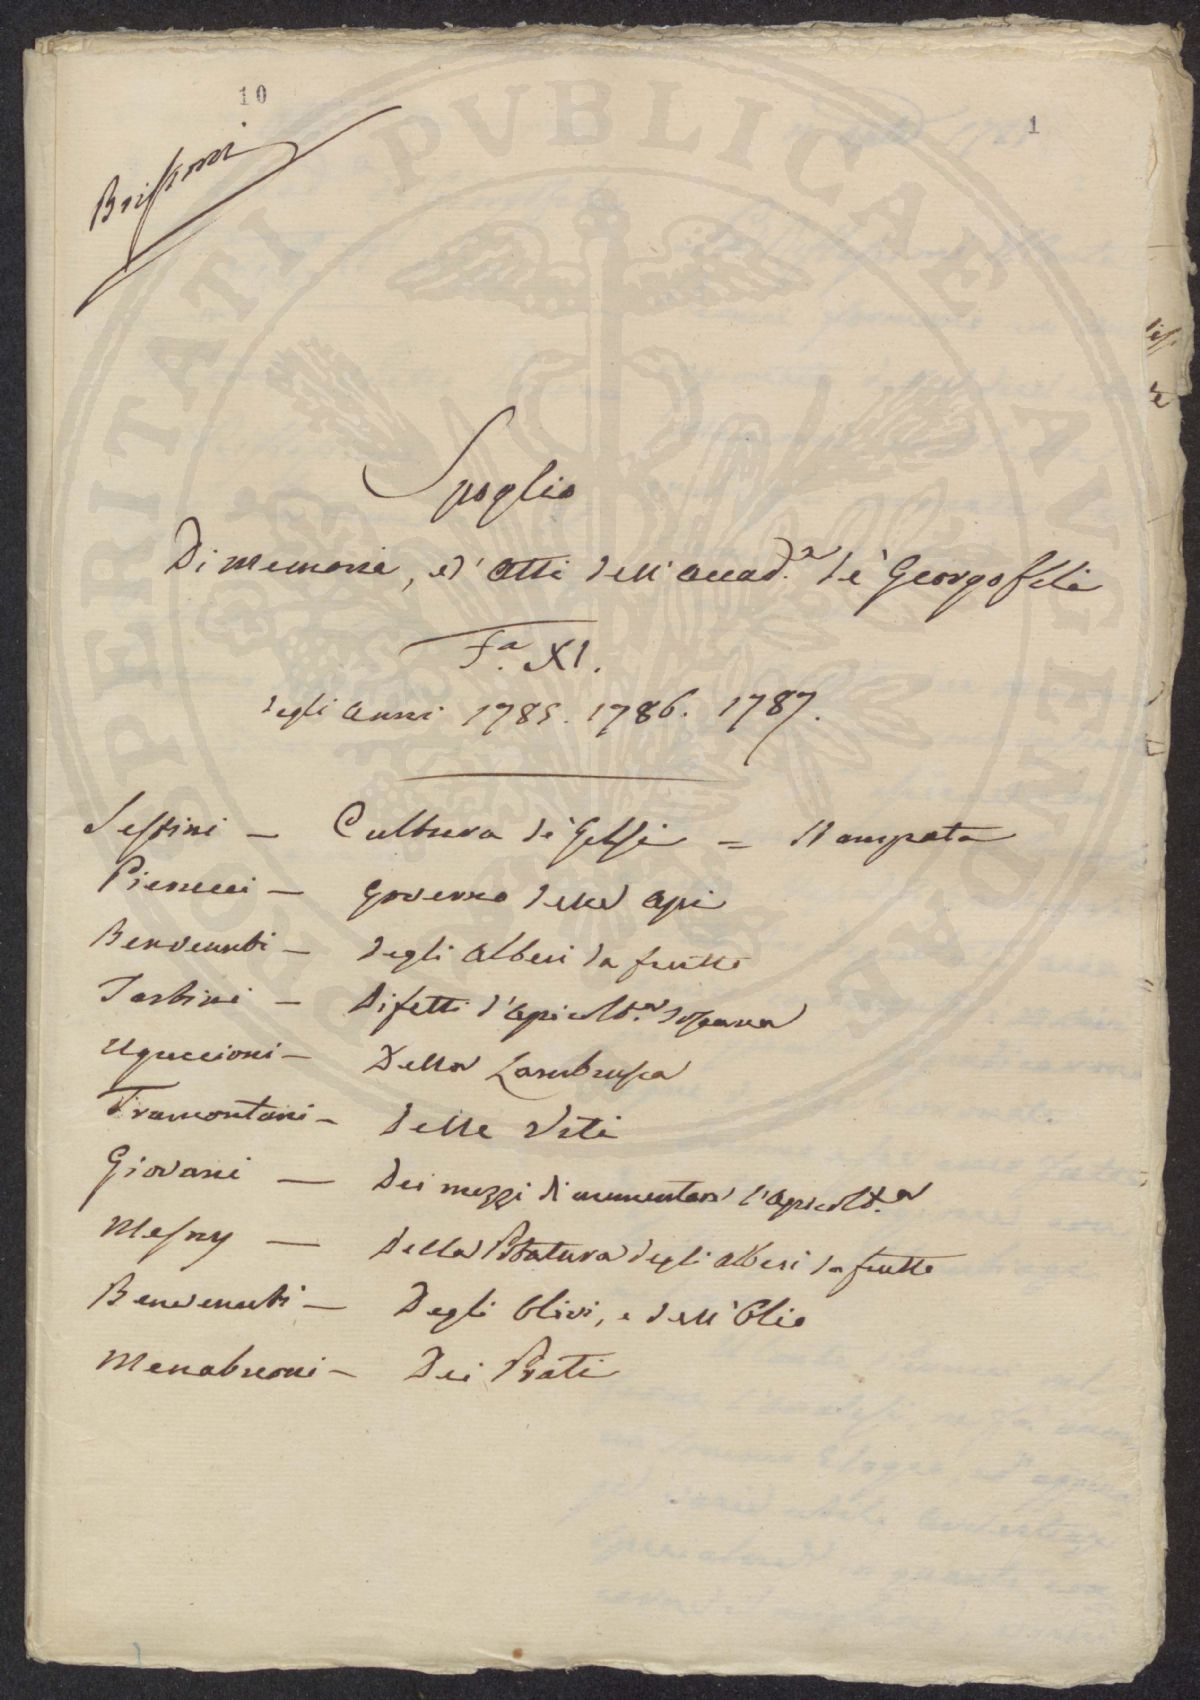 10
1
Spoglio
Di memorie, ed' Atti dell' Accad.a de' Georgofili
F.a XI.
degli Anni 1785. 1786. 1787.
Sestini – Cultura de' Gelsi = Stampata
Pierucci – Governo delle Api
Benvenuti – degli Alberi da frutto
Tartini – Difetti d'Agricolt.a Toscana
Uguccioni – Della Lambrusca
Tramontani – delle Viti
Giovani – Dei mezzi di aumentare l'Agricolt.a
Mesny – della Potatura degli Alberi da frutto
Benvenuti – Degli Olivi, e dell' Olio
Menabuoni – Dei Prati
PROSPERITATI PVBLICAE AVGENDAE